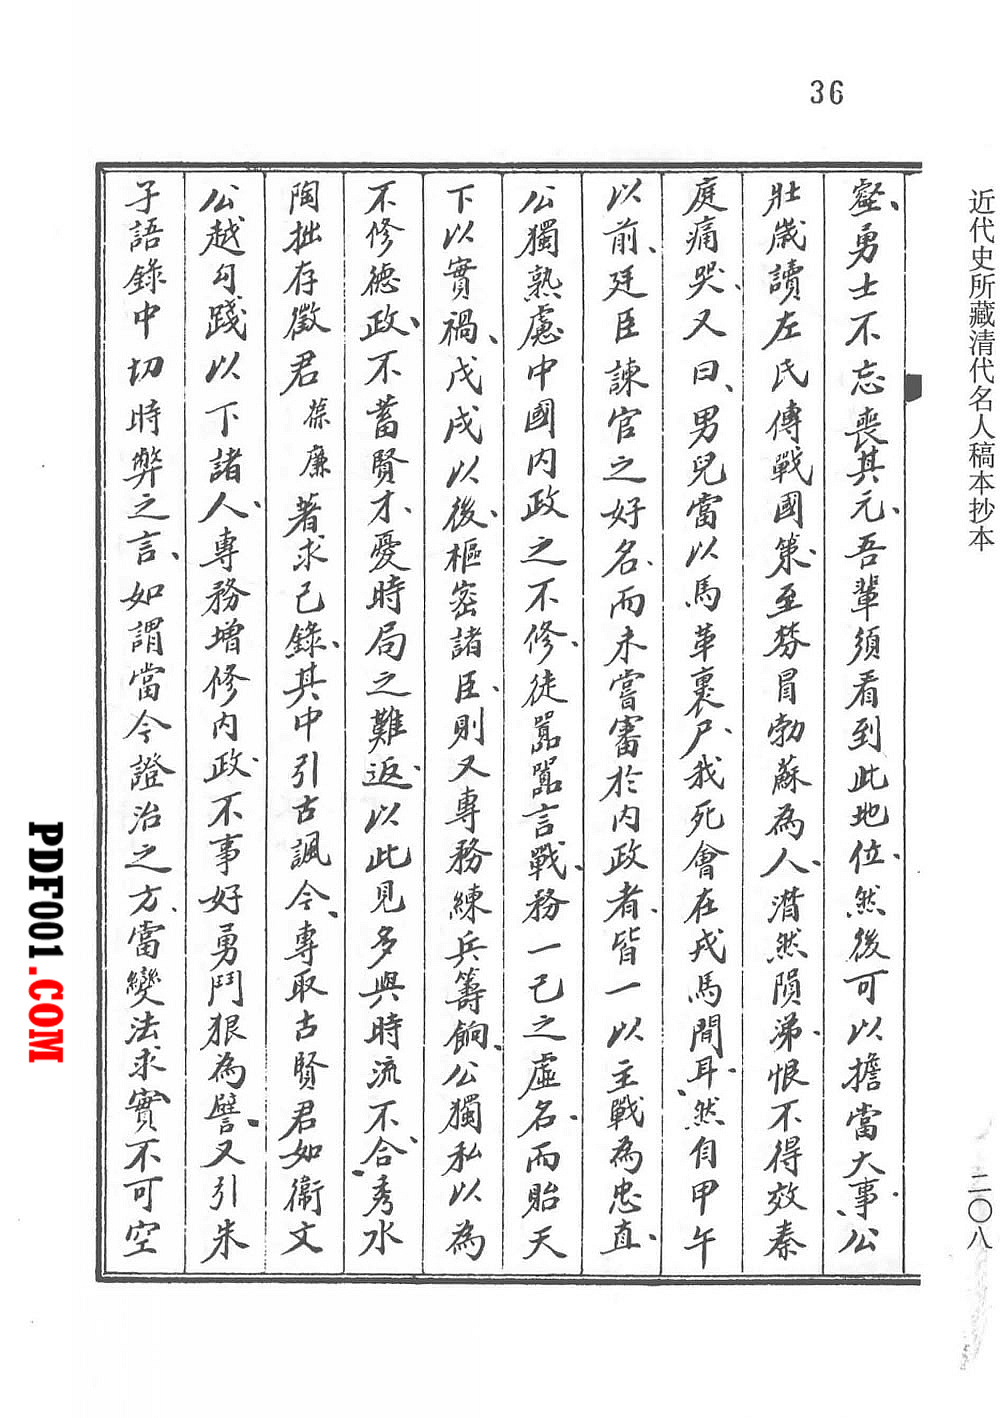 36
近代史所藏清代名人稿本抄本
二〇八
壑、勇士不忘喪其元、吾輩須看到此地位、然後可以擔當大事、公
壯歲讀左氏傳戰國策、至棼冒勃蘇為人、潸然隕涕、恨不得效秦
庭痛哭、又曰、男兒當以馬革裹尸、我死會在戎馬間耳、然自甲午
以前、廷臣諫官之好名、而未嘗審於內政者、皆一以主戰為忠直、
公獨熟慮中國內政之不修、徒囂囂言戰、務一己之虛名、而貽天
下以實禍、戊戌以後、樞密諸臣、則又專務練兵籌餉、公獨私以為
不修德政、不蓄賢才、憂時局之難返、以此見多與時流不合、秀水
陶拙存徵君葆廉著求己錄、其中引古諷今、專取古賢君如衛文
公越勾踐以下諸人、專務增修內政、不事好勇鬥狠為譬、又引朱
子語錄中切時弊之言、如謂當今證治之方、當變法求實、不可空
PDF001.COM